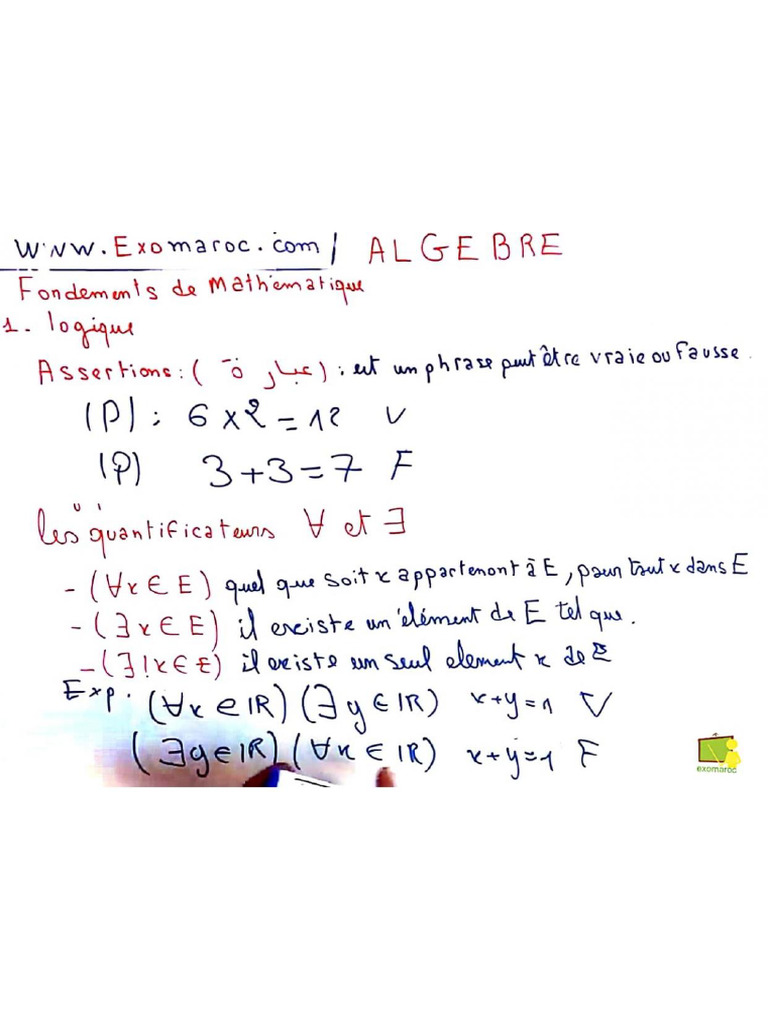 www.Exomaroc.com/ ALGEBRE
Fondements de Mathématique
1. logique
Assertions: (عبارة) : est un phrase peut être vraie ou fausse.
(P) : 6 x 2 = 12 V
(P) 3 + 3 = 7 F
les quantificateurs ∀ et ∃
- (∀x ∈ E) quel que soit x appartenont à E, pour tout x dans E
- (∃x ∈ E) il existe un élément de E tel que.
- (∃!x ∈ E) il existe un seul element x de E
Exp. (∀x ∈ IR) (∃y ∈ IR) x+y=1 V
(∃y ∈ IR) (∀x ∈ IR) x+y=1 F
exomaroc